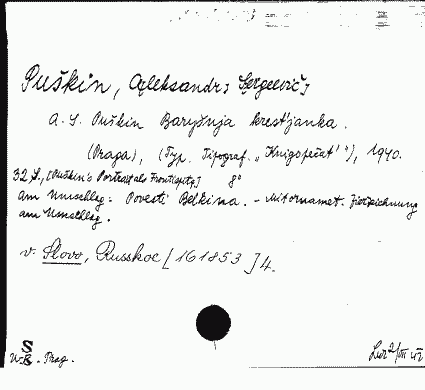 Puškin, Aleksandr Sergeevič
A. S. Puškin Baryšnja krest'janka.
(Praga), (Typ. Tipograf. "Knigopečat'"), 1940.
32 S., [Puškin's Porträt als Frontispitz] 8°
Am Umschlag: Povesti Belkina. - Mit ornamet. Zierzeichnung
am Umschlag.
v. Slovo, Russkoe [161853] 4.
S
U-B. Prag.